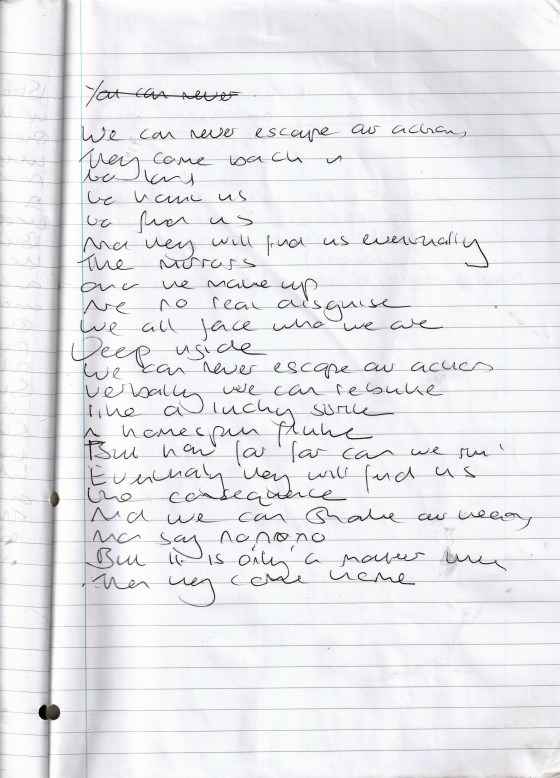 You can never
We can never escape our actions
They come back
to
to haunt us
to find us
And they will find us eventually
The mirrors
and the make up
Are no real disguise
We all face who we are
Deep inside
We can never escape our actions
Verbally we can rebuke
like a lucky strike
A homespun fluke
But how far far can we run
Eventually they will find us
the consequence
And we can shake our heads
And say no, no, no
But it is only a matter time
Then they come home